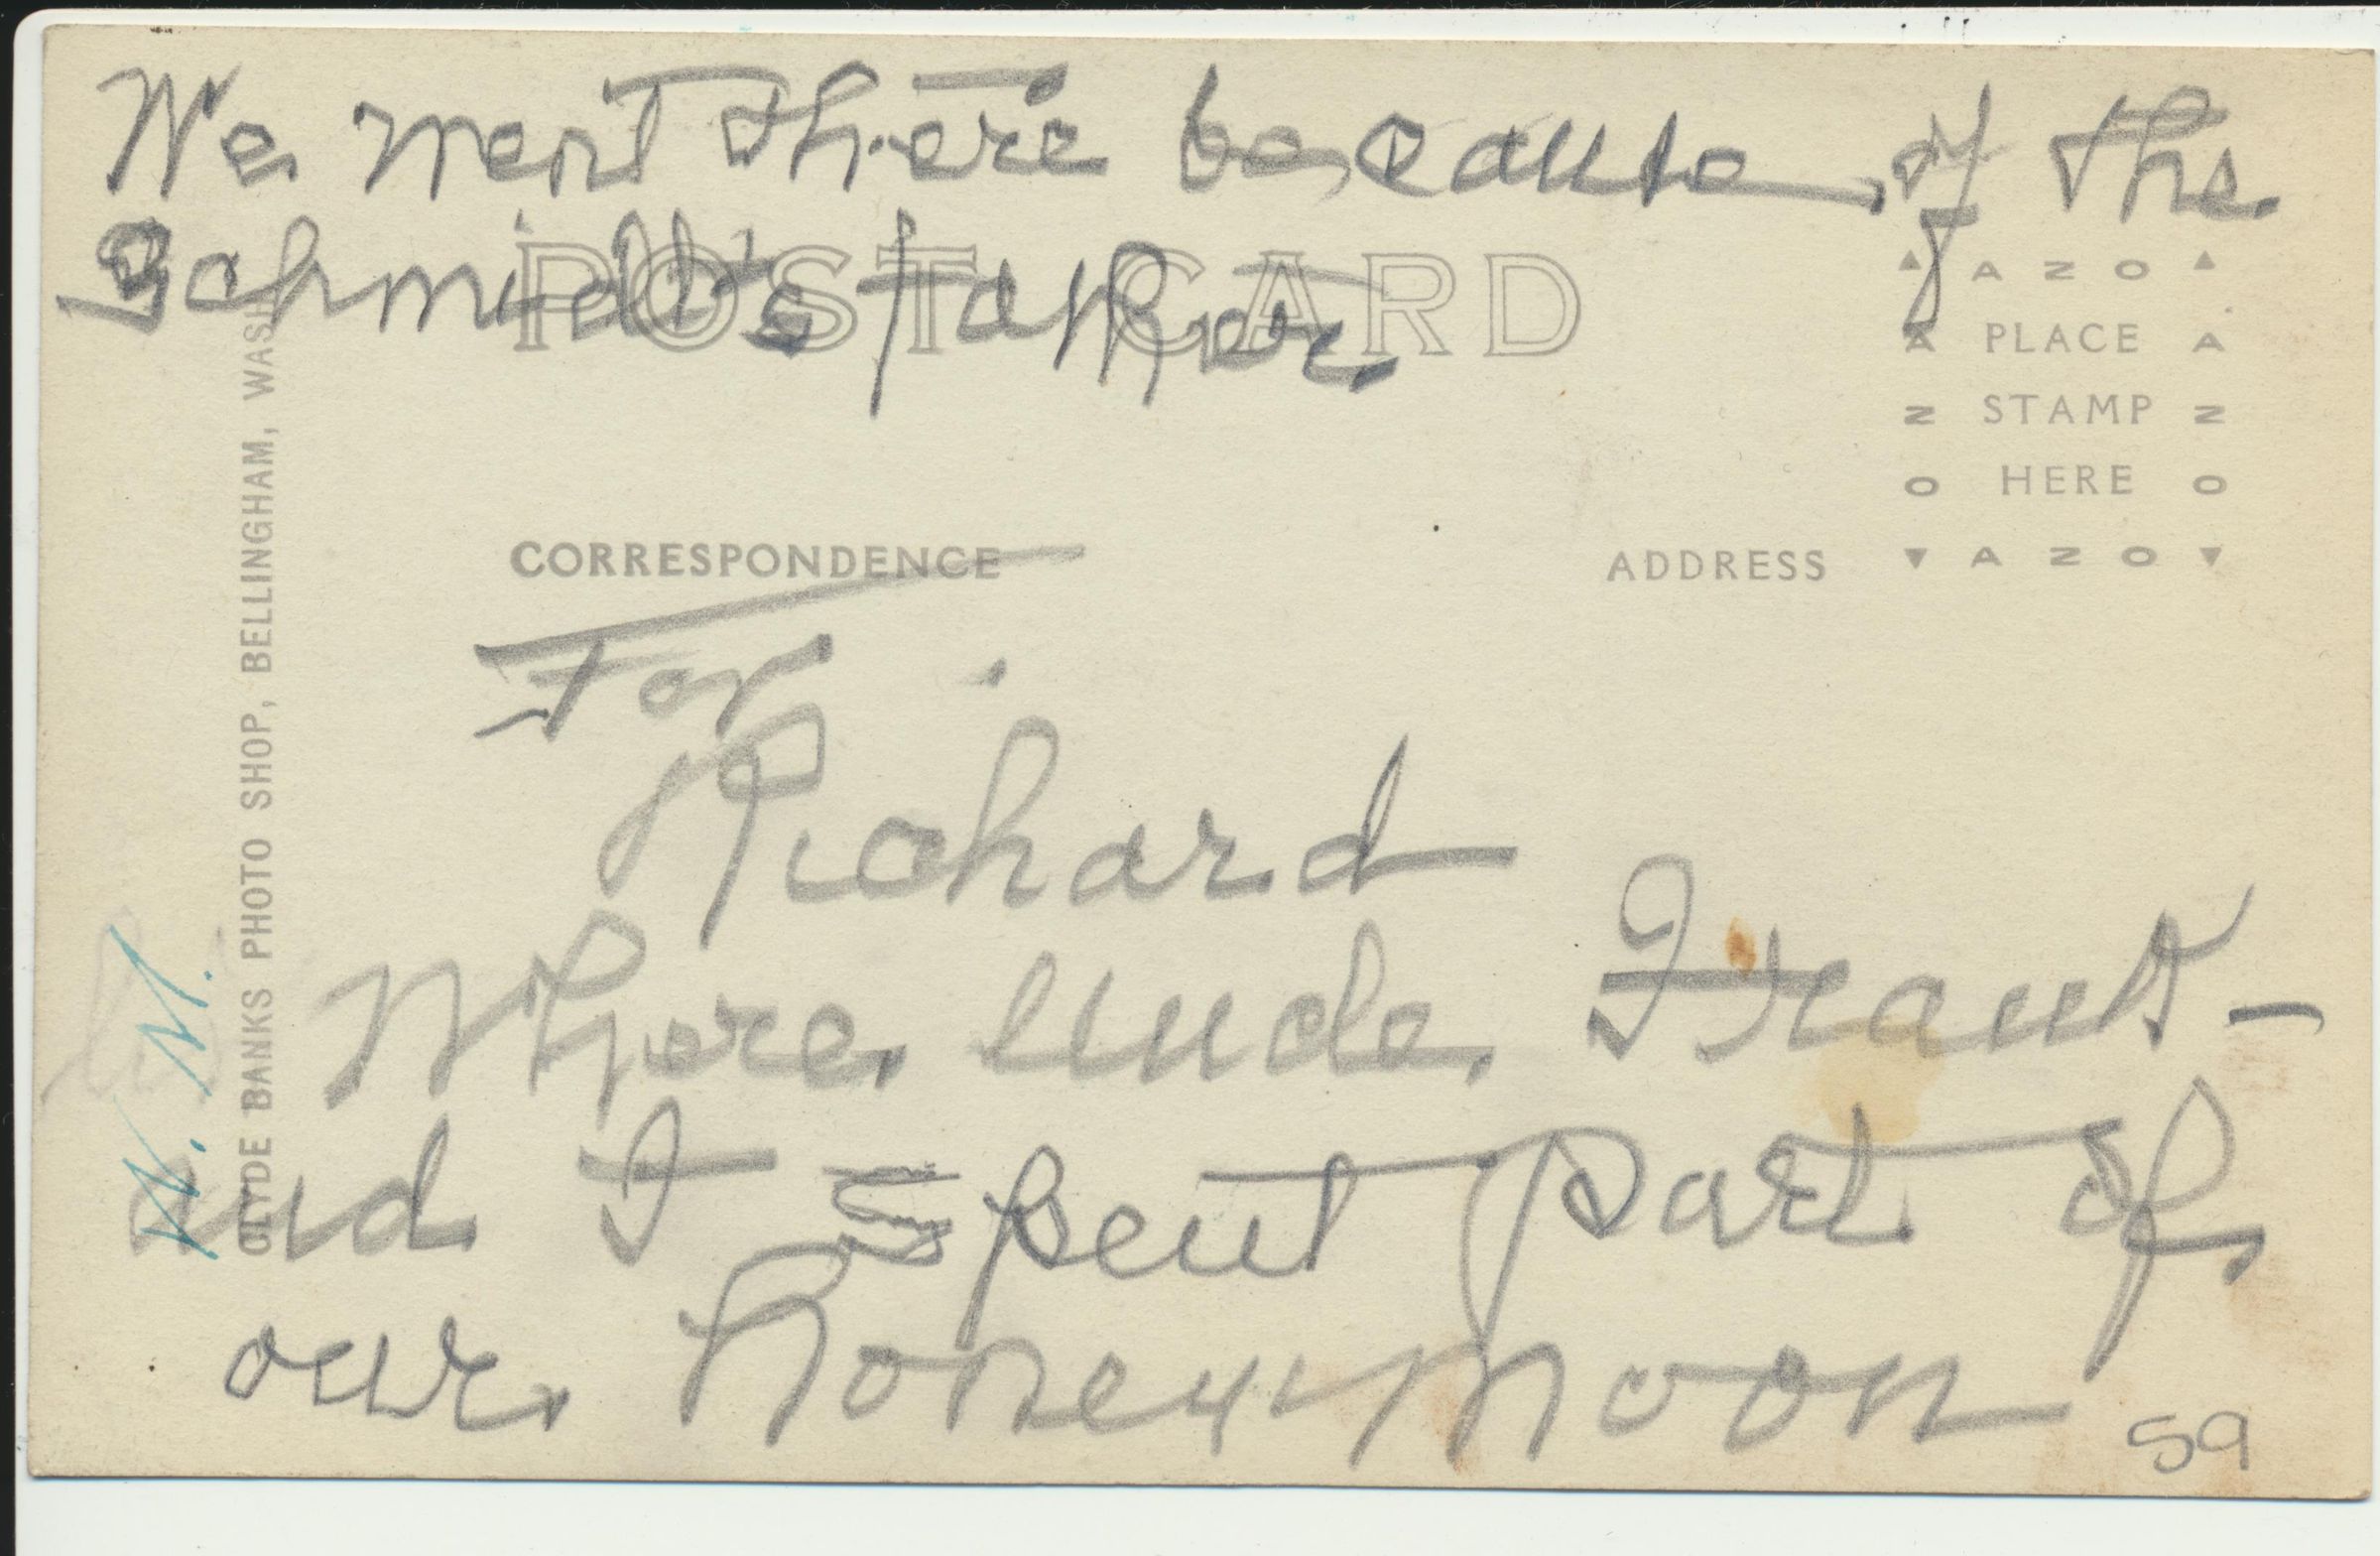 We went there because of the
Schmidt's father
POST CARD
AZO
PLACE
STAMP
HERE
AZO
CORRESPONDENCE
ADDRESS
For
Richard
Where Uncle Frank-
and I spent part of
our honeymoon
59
CLYDE BANKS PHOTO SHOP, BELLINGHAM, WASH.